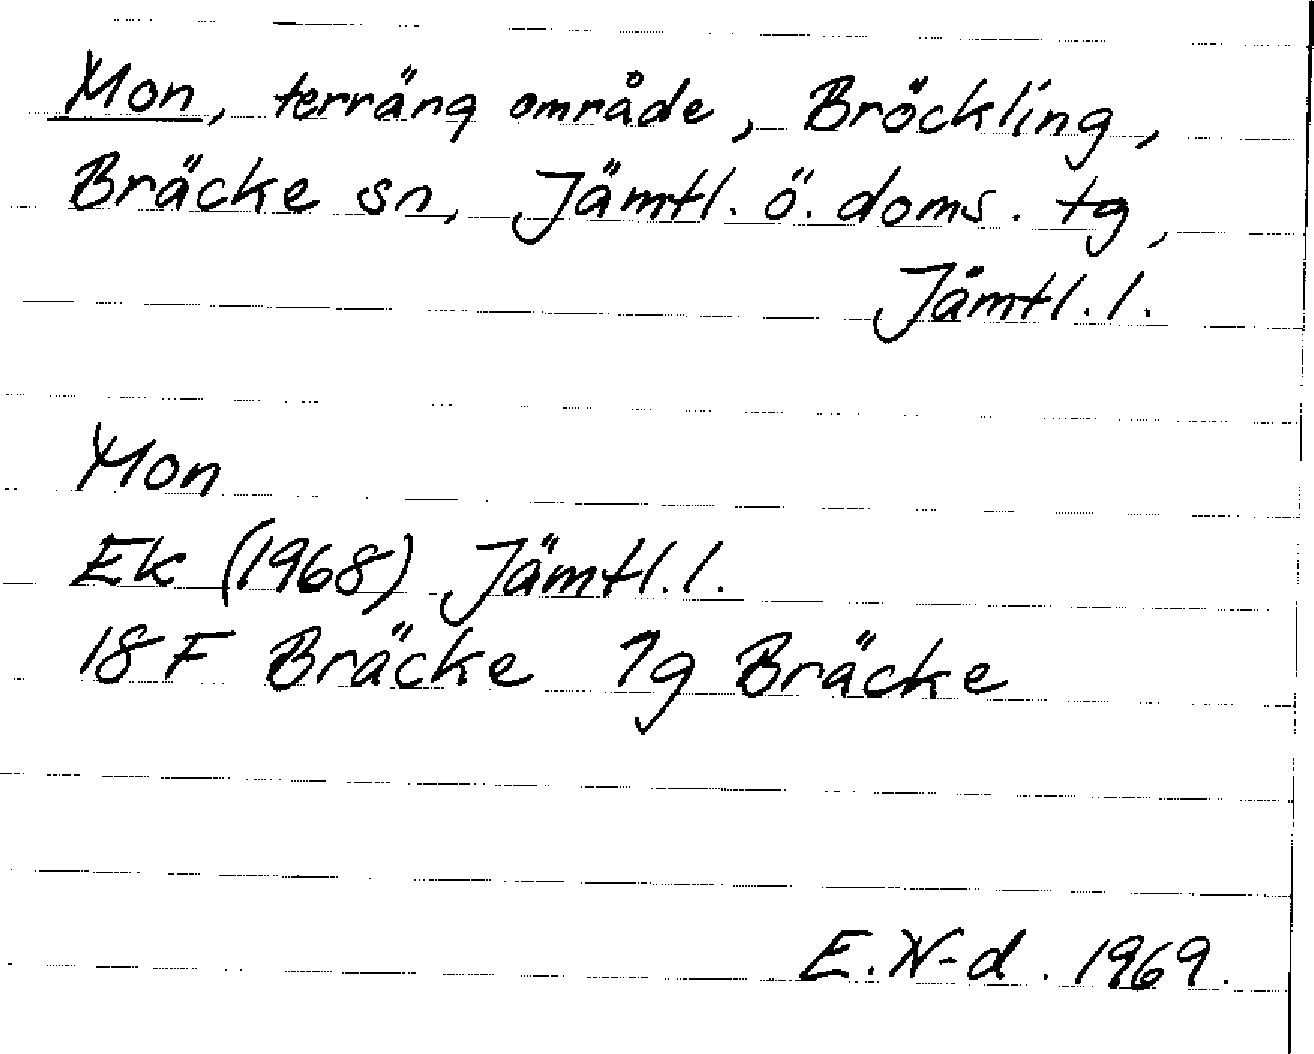 Mon, terräng område, Bröckling,
Bräcke sn, Jämtl. ö. doms. tg,
Jämtl. l.
Mon
Ek (1968) Jämtl. l.
18 F Bräcke 1g Bräcke
E. N-d. 1969.